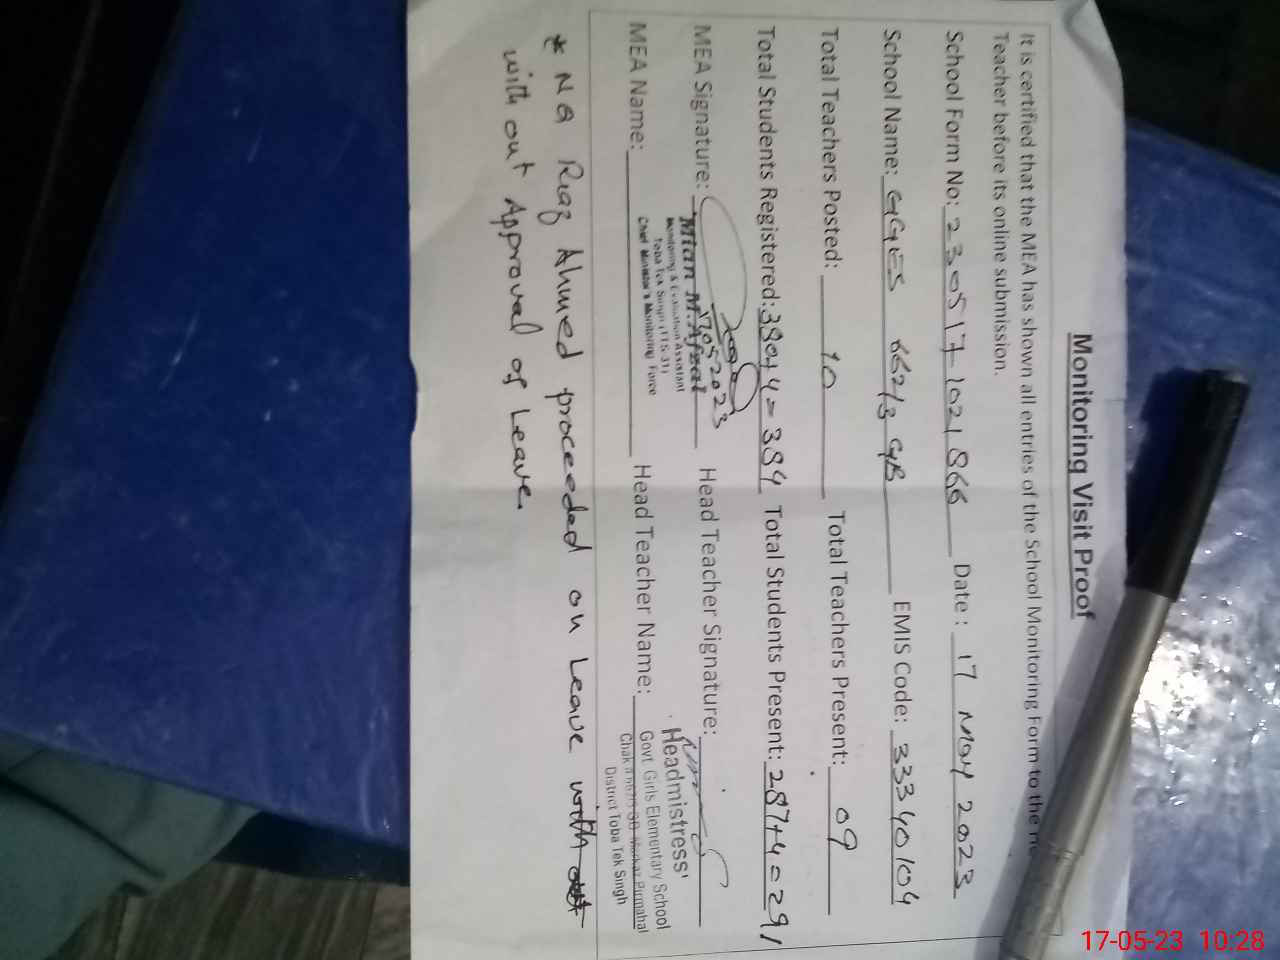 Monitoring Visit Proof
It is certified that the MEA has shown all entries of the School Monitoring Form to the
Teacher before its online submission.
School Form No: 230517 1021866 Date: 17 May 2023
School Name: GGES 662/3 GB EMIS Code: 33340104
Total Teachers Posted: 10 Total Teachers Present: 09
Total Students Registered: 380+4=384 Total Students Present: 287+4=291
MEA Signature: 17052023 Head Teacher Signature:
Mian M.Afzal
Monitoring & Evaluation Assistant
Toba Tek Singh (TTS-31)
Chief Minister's Monitoring Force
MEA Name: Head Teacher Name:
Headmistress
Govt. Girls Elementary School
Chak Pirmahal
District Toba Tek Singh
* Riaz Ahmed proceeded on Leave
with out Approval of Leave
17-05-23 10:28